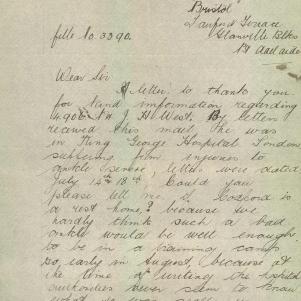 "Bristol"
Sandford Terrace
Glanville Blks
Nt Adelaide
file No. 3390.
Dear Sir
A letter to thank you
for kind information regarding
4900 Nt J. H. West. By letters
received this mail he was
in King George Hospital London
suffering from injuries to
ankle severe, letters were dated
July 15th 18th. Could you
please tell me, Is Codford
a rest home? because we
hardly think such a bad
ankle would be well enough
to be in a training camp
so early in August, because at
the time of writing the hospital
authorities never seem to know